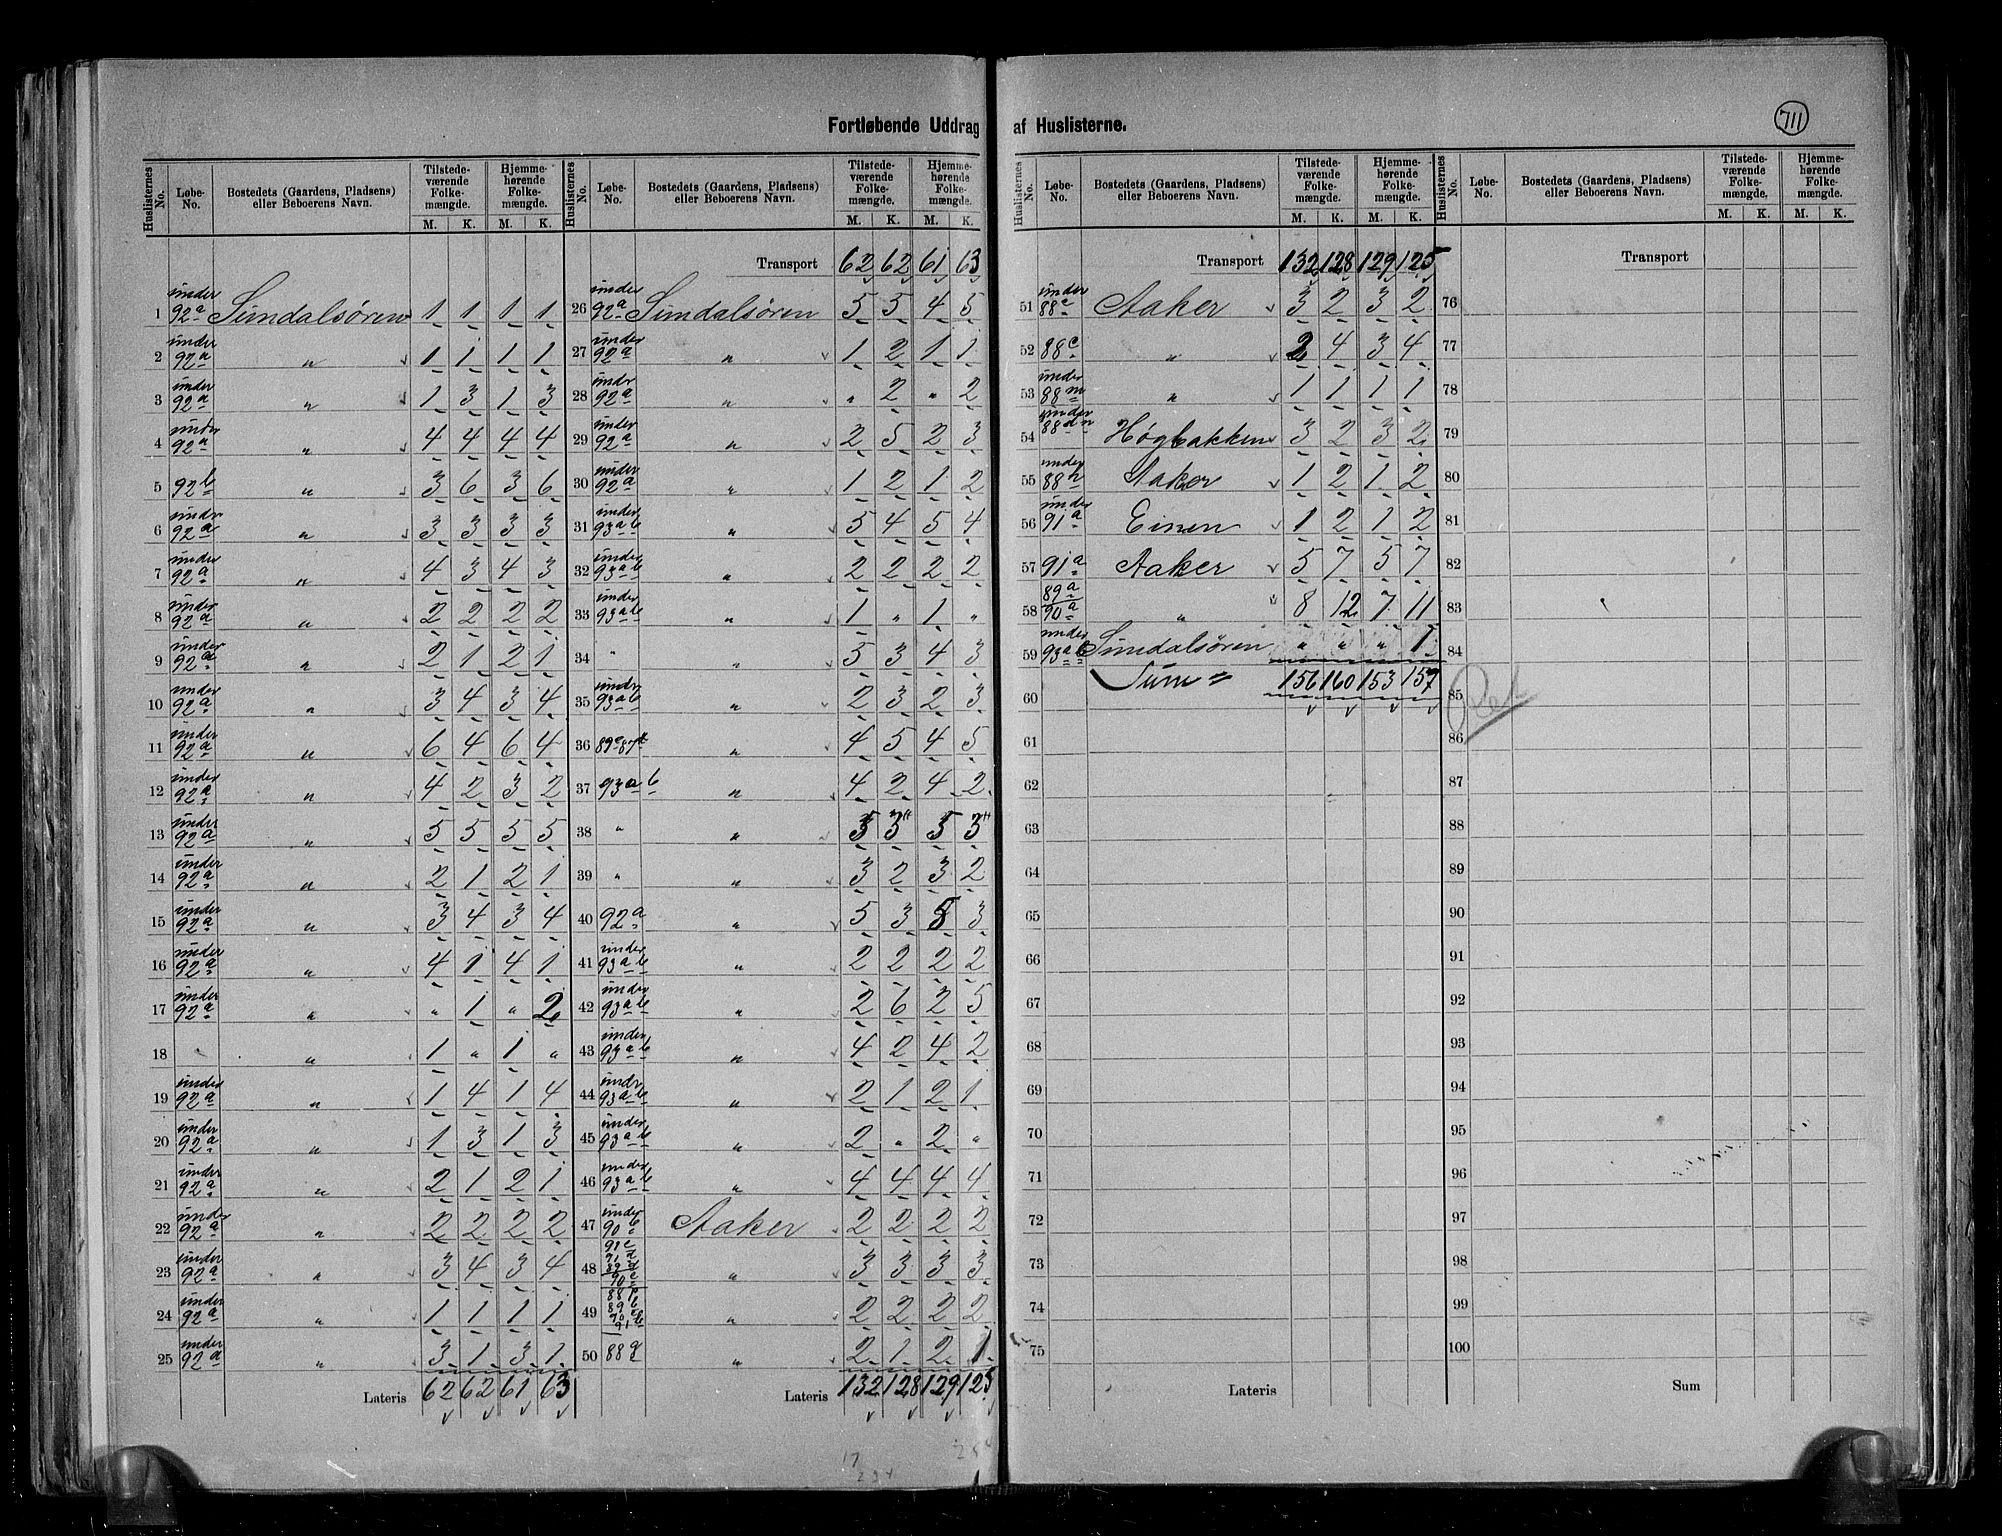 Fortløbende Uddrag af Huslisterne.
711
Huslisternes No. | Løbe-No. | Bostedets (Gaardens, Pladsens) eller Beboerens Navn. | Tilstede-værende Folke-mængde. M. K. | Hjemme-hørende Folke-mængde. M. K.
1 under 92a Sundalsøren 1 1 1 1
2 under 92a " 1 1 1 1
3 under 92a " 1 3 1 3
4 under 92a " 4 4 4 4
5 92b " 3 6 3 6
6 under 92a " 3 3 3 3
7 under 92a " 4 3 4 3
8 under 92a " 2 2 2 2
9 under 92a " 2 1 2 1
10 under 92a " 3 4 3 4
11 under 92a " 6 4 6 4
12 under 92a " 4 2 3 2
13 under 92a " 5 5 5 5
14 under 92a " 2 1 2 1
15 under 92a " 3 4 3 4
16 under 92a " 4 1 4 1
17 under 92a " " 1 " 2
18 " 1 " 1 "
19 under 92a " 1 4 1 4
20 under 92a " 1 3 1 3
21 under 92a " 2 1 2 1
22 under 92a " 2 2 2 2
23 under 92a " 3 4 3 4
24 under 92a " 1 1 1 1
25 under 92a " 3 1 3 1
Lateris 62 62 61 63
Huslisternes No. | Løbe-No. | Bostedets (Gaardens, Pladsens) eller Beboerens Navn. | Tilstede-værende Folke-mængde. M. K. | Hjemme-hørende Folke-mængde. M. K.
Transport 62 62 61 63
26 under 92a Sundalsøren 5 5 4 5
27 under 92a " 1 2 1 1
28 under 92a " " 2 " 2
29 under 92a " 2 5 2 3
30 under 92a " 1 2 1 2
31 under 93a b " 5 4 5 4
32 under 93a b " 2 2 2 2
33 under 93a b " 1 " 1 "
34 " " 5 3 4 3
35 under 93a b " 2 3 2 3
36 " 4 5 4 5
37 93a b " 4 2 4 2
38 " "
39 " " 3 2 3 2
40 92a " 5 3 5 3
41 under 93a b " 2 2 2 2
42 under 93a b " 2 6 2 5
43 under 93a b " 4 2 4 2
44 under 93a b " 2 1 2 1
45 under 93a b " 2 " 2 "
46 under 93a b " 4 4 4 4
47 under 90b Aaker 2 2 2 2
48 " 3 3 3 3
49 " 2 2 2 2
50 88g " 2 1 2 1
Lateris 132 128 129 125
Huslisternes No. | Løbe-No. | Bostedets (Gaardens, Pladsens) eller Beboerens Navn. | Tilstede-værende Folke-mængde. M. K. | Hjemme-hørende Folke-mængde. M. K.
Transport 132 128 129 125
51 under 88e Aaker 3 2 3 2
52 88c " 2 4 3 4
53 under 88m " 1 1 1 1
54 under Høgbakken 3 2 3 2
55 under 88h Aaker 1 2 1 2
56 under 91a Einen 1 2 1 2
57 91a Aaker 5 7 5 7
58 89a 90a " 8 12 7 11
59 under 93a b Sundalsøren " " " 1
60 Sum = 156 160 153 157
61
62
63
64
65
66
67
68
69
70
71
72
73
74
75
Lateris
Huslisternes No. | Løbe-No. | Bostedets (Gaardens, Pladsens) eller Beboerens Navn. | Tilstede-værende Folke-mængde. M. K. | Hjemme-hørende Folke-mængde. M. K.
Transport
76
77
78
79
80
81
82
83
84
85
86
87
88
89
90
91
92
93
94
95
96
97
98
99
100
Sum